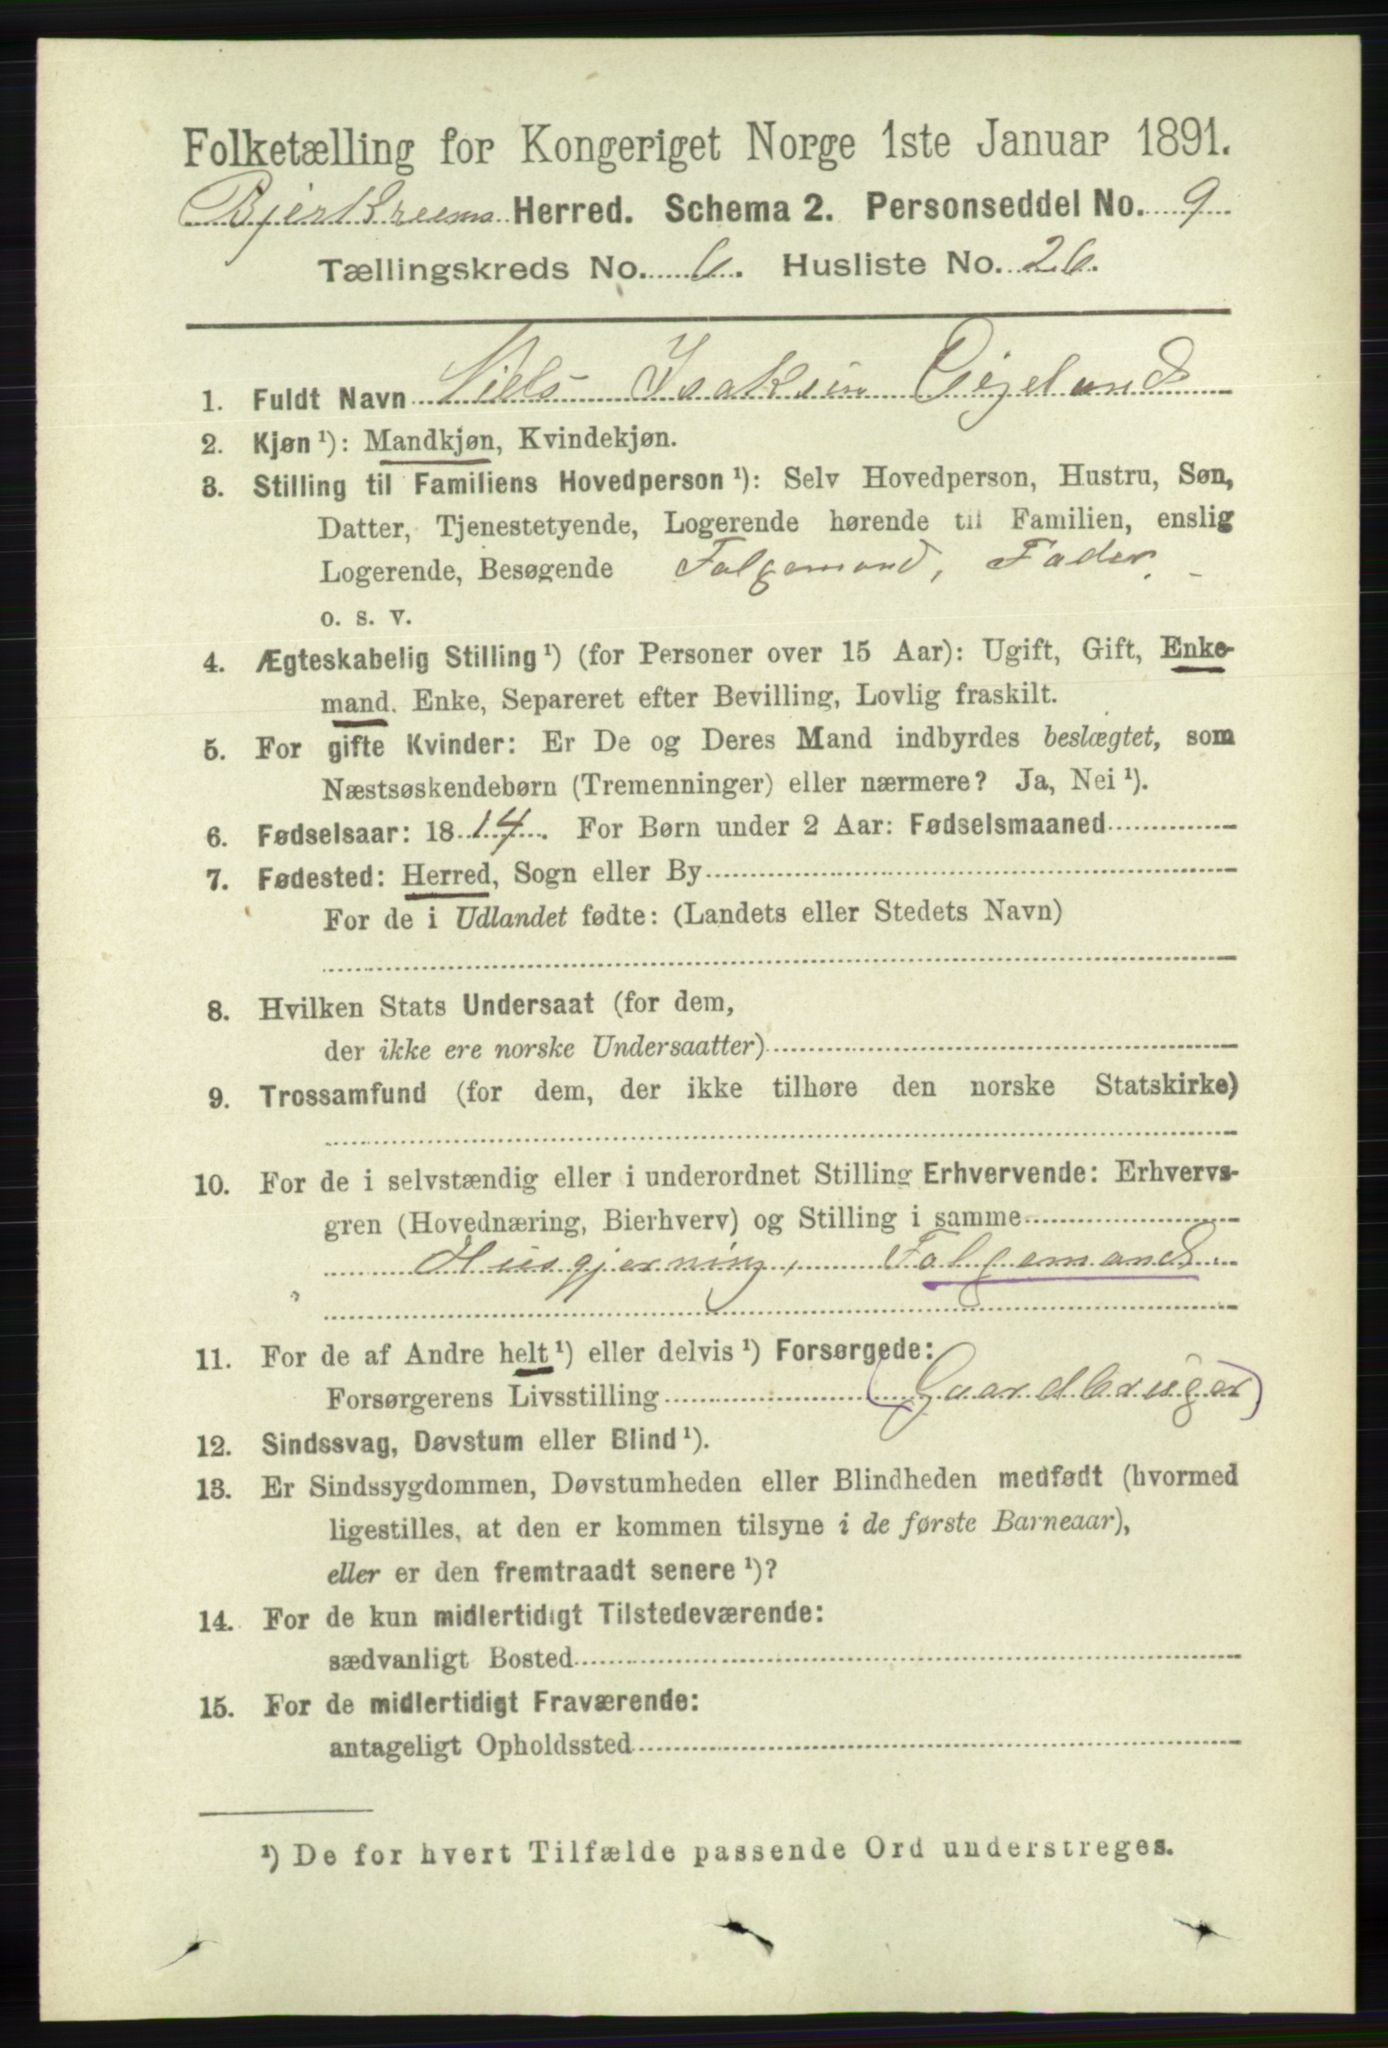 Folketælling for Kongeriget Norge 1ste Januar 1891.
Bjerkreims Herred. Schema 2. Personseddel No. 9
Tællingskreds No. 6. Husliste No. 26.
1. Fuldt Navn Niels Isaksen Eigeland
2. Kjøn ¹): Mandkjøn, Kvindekjøn.
3. Stilling til Familiens Hovedperson ¹): Selv Hovedperson, Hustru, Søn,
Datter, Tjenestetyende, Logerende hørende til Familien, enslig
Logerende, Besøgende Folgemand, Fader.
o. s. v.
4. Ægteskabelig Stilling ¹) (for Personer over 15 Aar): Ugift, Gift, Enke-
mand. Enke, Separeret efter Bevilling, Lovlig fraskilt.
5. For gifte Kvinder: Er De og Deres Mand indbyrdes beslægtet, som
Næstsøskendebørn (Tremenninger) eller nærmere? Ja, Nei ¹).
6. Fødselsaar: 1814. For Børn under 2 Aar: Fødselsmaaned
7. Fødested: Herred, Sogn eller By
For de i Udlandet fødte: (Landets eller Stedets Navn)
8. Hvilken Stats Undersaat (for dem,
der ikke ere norske Undersaatter)
9. Trossamfund (for dem, der ikke tilhøre den norske Statskirke)
10. For de i selvstændig eller i underordnet Stilling Erhvervende: Erhvervs-
gren (Hovednæring, Bierhverv) og Stilling i samme
Husgjerning, Folgemand.
11. For de af Andre helt ¹) eller delvis ¹) Forsørgede:
Forsørgerens Livsstilling (Gaardbruger)
12. Sindssvag, Døvstum eller Blind ¹).
13. Er Sindssygdommen, Døvstumheden eller Blindheden medfødt (hvormed
ligestilles, at den er kommen tilsyne i de første Barneaar),
eller er den fremtraadt senere ¹)?
14. For de kun midlertidigt Tilstedeværende:
sædvanligt Bosted
15. For de midlertidigt Fraværende:
antageligt Opholdssted
¹) De for hvert Tilfælde passende Ord understreges.